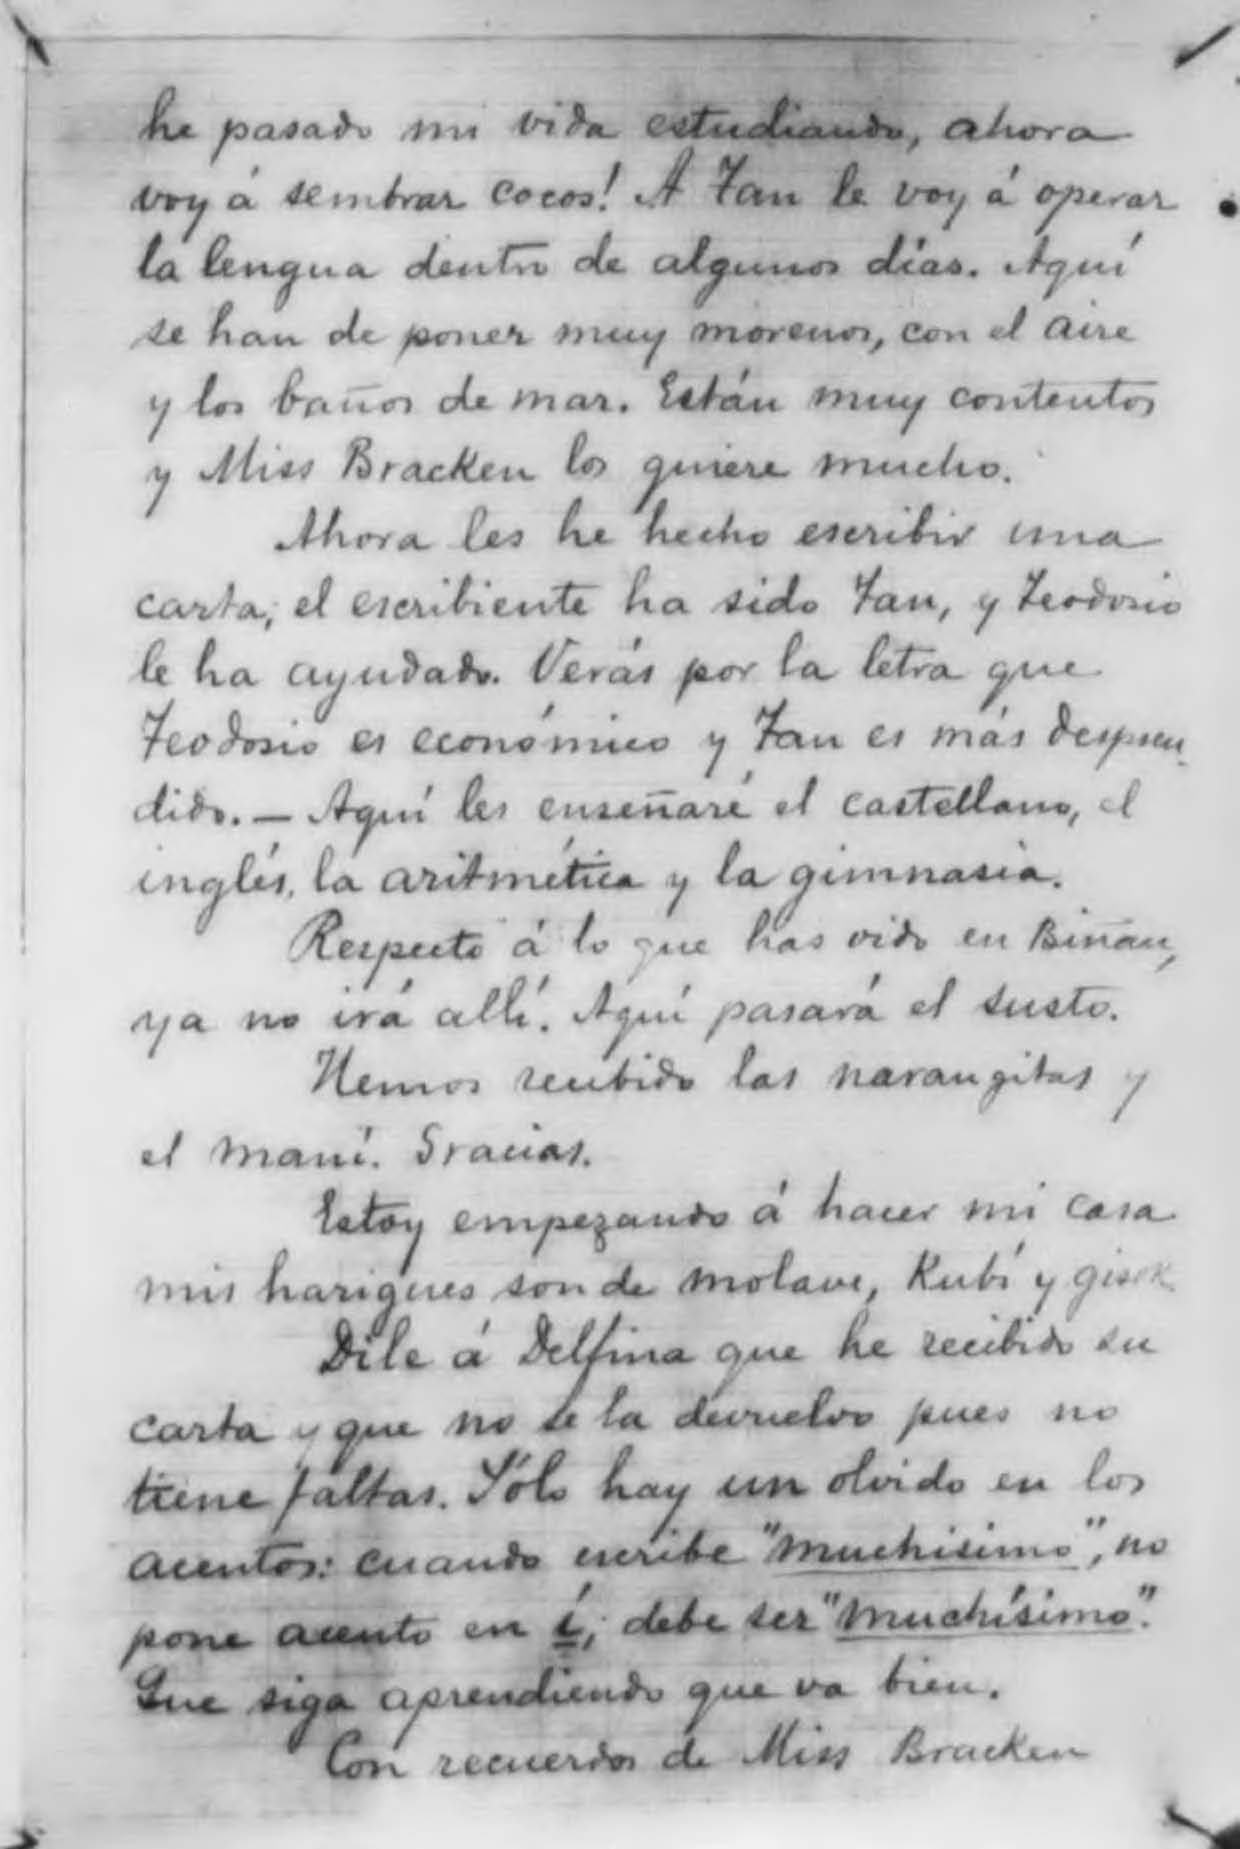 he pasado mi vida estudiando, ahora
voy á sembrar cocos! A Tan le voy á operar
la lengua dentro de algunos días. Aquí
se han de poner muy morenos, con el aire
y los baños de mar. Están muy contentos
y Miss Bracken los quiere mucho.
Ahora les he hecho escribir una
carta; el escribiente ha sido Tan, y Teodosio
le ha ayudado. Verás por la letra que
Teodosio es económico y Tan es más despren
dido. — Aquí les enseñaré el castellano, el
inglés, la aritmética y la gimnasia.
Respecto á lo que has oido en Biñan,
ya no irá allí. Aquí pasará el susto.
Hemos recibido las narangitas y
el maní. Gracias.
Estoy empezando á hacer mi casa
mis harigues son de molave, Kubí y gisok
Dile á Delfina que he recibido su
carta y que no se la devuelvo pues no
tiene faltas. Sólo hay un olvido en los
acentos: cuando escribe "muchisimo", no
pone acento en í; debe ser "muchísimo".
Que siga aprendiendo que va bien.
Con recuerdos de Miss Bracken